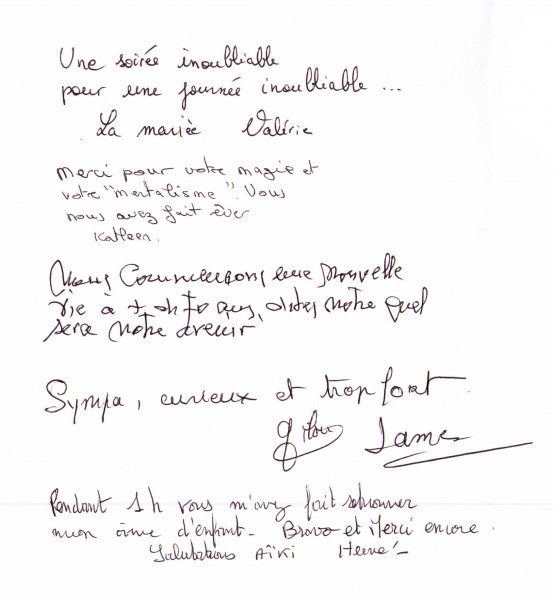 Une soirée inoubliable
pour une journée inoubliable ...
La mariée Valérie
Merci pour votre magie et
votre "mentalisme". Vous
nous avez fait rêver
Katleen.
Nous Commencons une nouvelle
vie à + de ans, dites notre quel
sera notre avenir
Sympa, curieux et trop fort
James
Pendant 1h vous m'avez fait retrouver
mon âme d'enfant - Bravo et Merci encore.
Salutations Aïki Hervé -